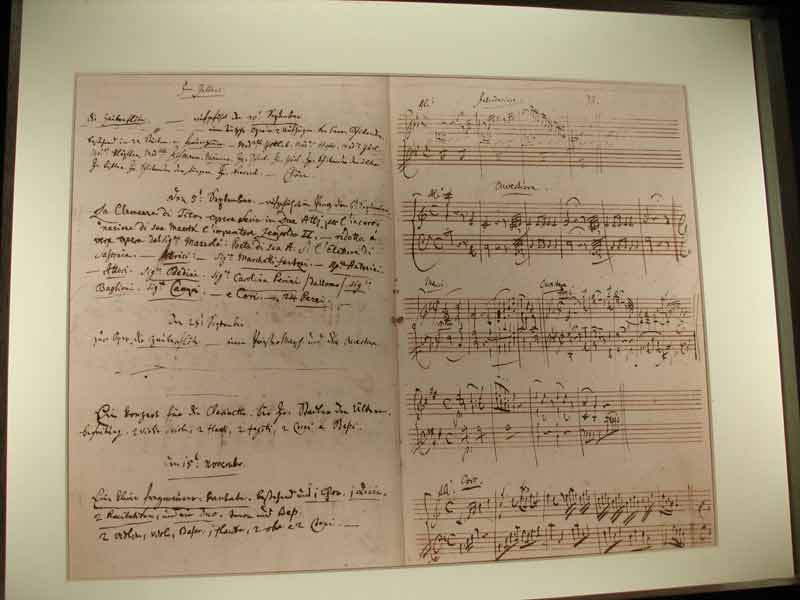 Im Jullius.
die Zauberflöte. — aufgeführt den 30t September.
— eine teutsche Oper in 2 Aufzügen. von Eman. Schikaneder.
bestehend in 22 Stücken. — Frauenzimmer. —
Chöre. —
Den 5t September. — aufgeführt in Prag den 6t September.
La Clemenza di Tito. opera seria in Due Atti. per l'incoro=
nazione di sua Maestà l'imperatore Leopoldo II. — ridotta à
vera opera dal Sigre Mazzolà. Poeta di Sua A: S: l'Elettore di
Sassonia. — Attrici: — Sigra Marchetti fantozi. — Sigra Antonini.
— Attori. Sigre Bedini. Sigra Carolina Perini /da uomo/ Sigre
Baglioni. Sigre Campi. — e Cori. — 24 Pezzi.
Den 28t September.
zur Oper, die Zauberflöte — einen Priestermarsch und die Ouverture.
Ein Konzert für die Clarinette. für Hr. Stadler den Ältern.
begleitung. 2 violini, viola, 2 flauti, 2 fagotti, 2 Corni e Bassi.
Den 15t Novembr.
Eine kleine freymaurer-kantate. bestehend aus 1 Chor. 1 Arie.
2 Recitativen, und ein Duo. tenor und Bass.
2 violini, viola, Basso, 1 flauto, 2 oboe e 2 Corni. —
All:
Ouverture.
All:
Ouverture.
All: Coro.